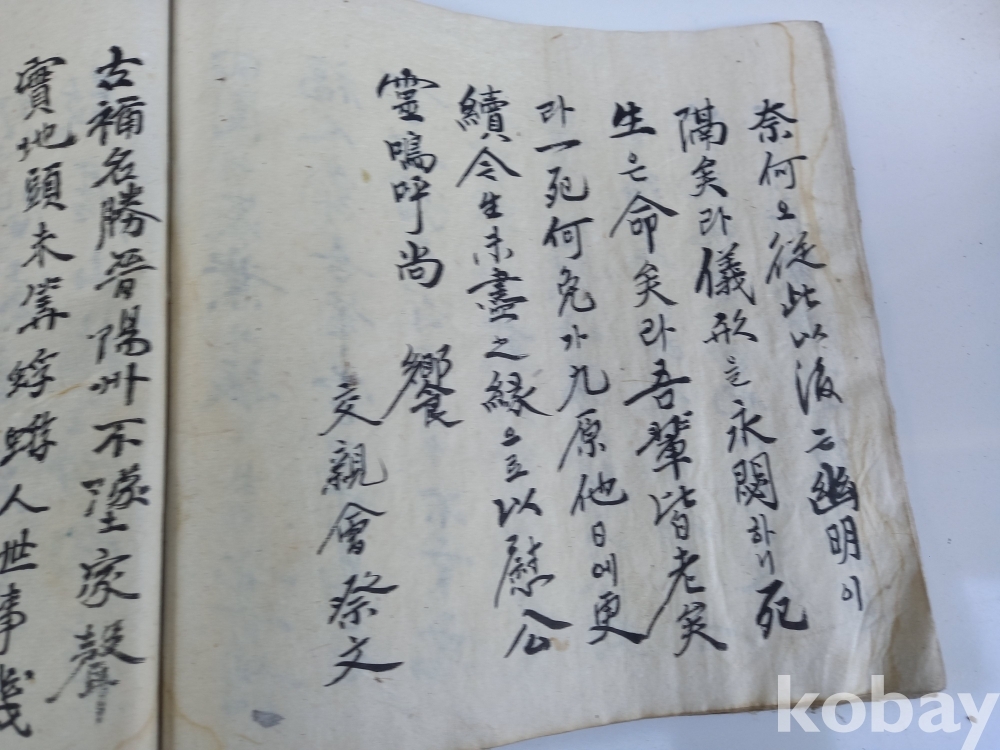 奈何오從此以後는幽明이
隔矣라儀形은永閟하니死
生은命矣라吾輩皆老矣
라一死何免가九原他日에更
續今生未盡之緣으로以慰公
靈嗚呼尙
饗
交親會祭文
古稱名勝晋陽州不墜家聲
實地頭未算蜉蝣人世事
kobay